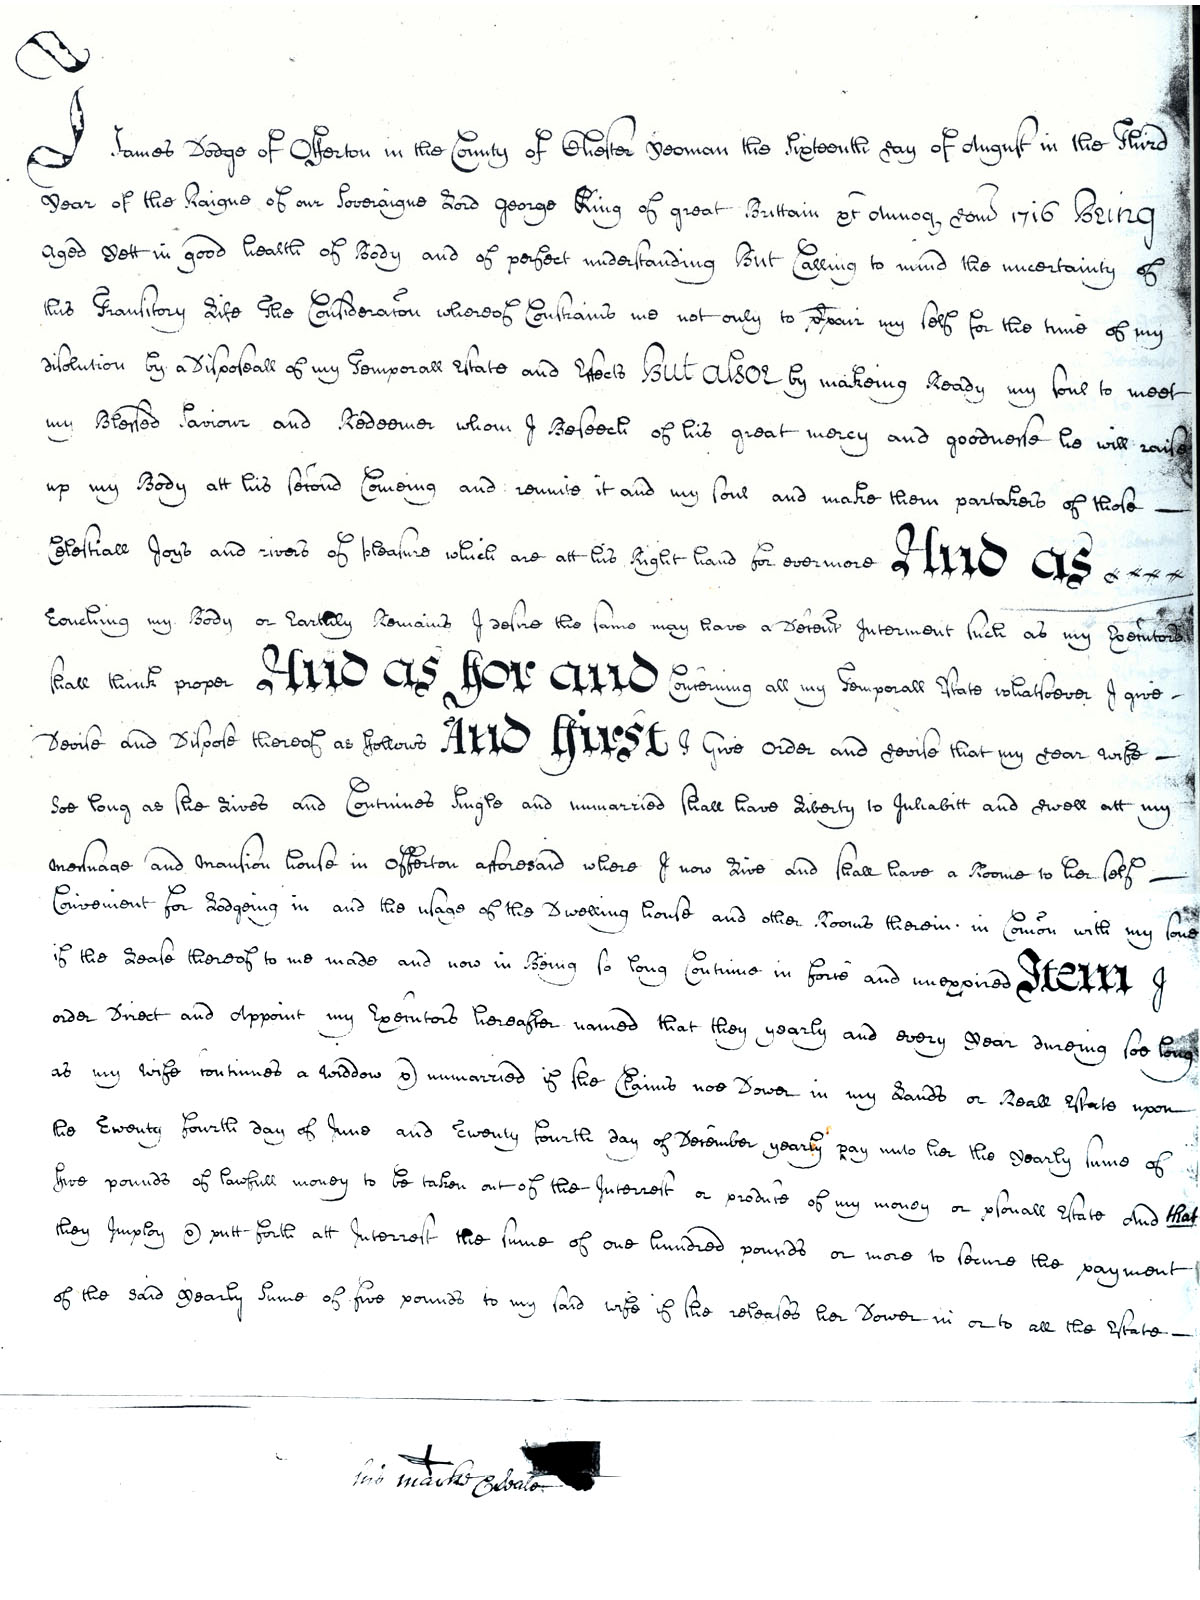 I James Dodge of Offerton in the County of Chester Yeoman the Sixteenth day of August in the Third
Year of the Raigne of our Soveraigne Lord George King of great Brittain &c Annoq, Dom 1716 Being
aged yett in good health of Body and of perfect understanding But Calling to mind the uncertainty of
this Transitory Life The Consideraton whereof Constrains me not only to ppair my self for the time of my
disolution by a Disposeall of my Temporall Estate and Effects But alsoe by makeing Ready my soul to meet
my Blessed Saviour and Redeemer whom I Beseech of his great mercy and goodnesse he will raise
up my Body att his second Comeing and reunite it and my soul and make them partakers of those —
Celestiall Joys and rivers of pleasure which are att his Right hand for evermore And as
touching my Body or Earthly Remains I desire the same may have a Decent Interment such as my Executors
shall think proper And as for and Concerning all my Temporall Estate whatsoever I give -
Devise and Dispose thereof as follows And first I Give order and devise that my dear wife —
soe long as she Lives and Continues Single and unmarried shall have Liberty to Inhabitt and dwell att my
messuage and mansion house in Offerton afforesaid where I now Live and shall have a Roome to her self —
Convenient for Lodgeing in and the usage of the Dwelling house and other Rooms therein in Comon with my sone
if the Lease thereof to me made and now in Being so long Continue in force and unexpired Item I
order Direct and Appoint my Executors hereafter named that they yearly and every Year dureing soe long
as my wife continues a widdow & unmarried if she Claims noe Dower in my Lands or Reall Estate upon
the Twenty fourth day of June and Twenty fourth day of December yearly pay unto her the yearly sume of
five pounds of lawfull money to be taken out of the Interrest or produce of my money or psonall Estate And that
they Imploy & putt forth att Interrest the sume of one hundred pounds or more to secure the payment
of the said yearly sume of five pounds to my said wife if she releases her Dower in or to all the Estate —
his marke